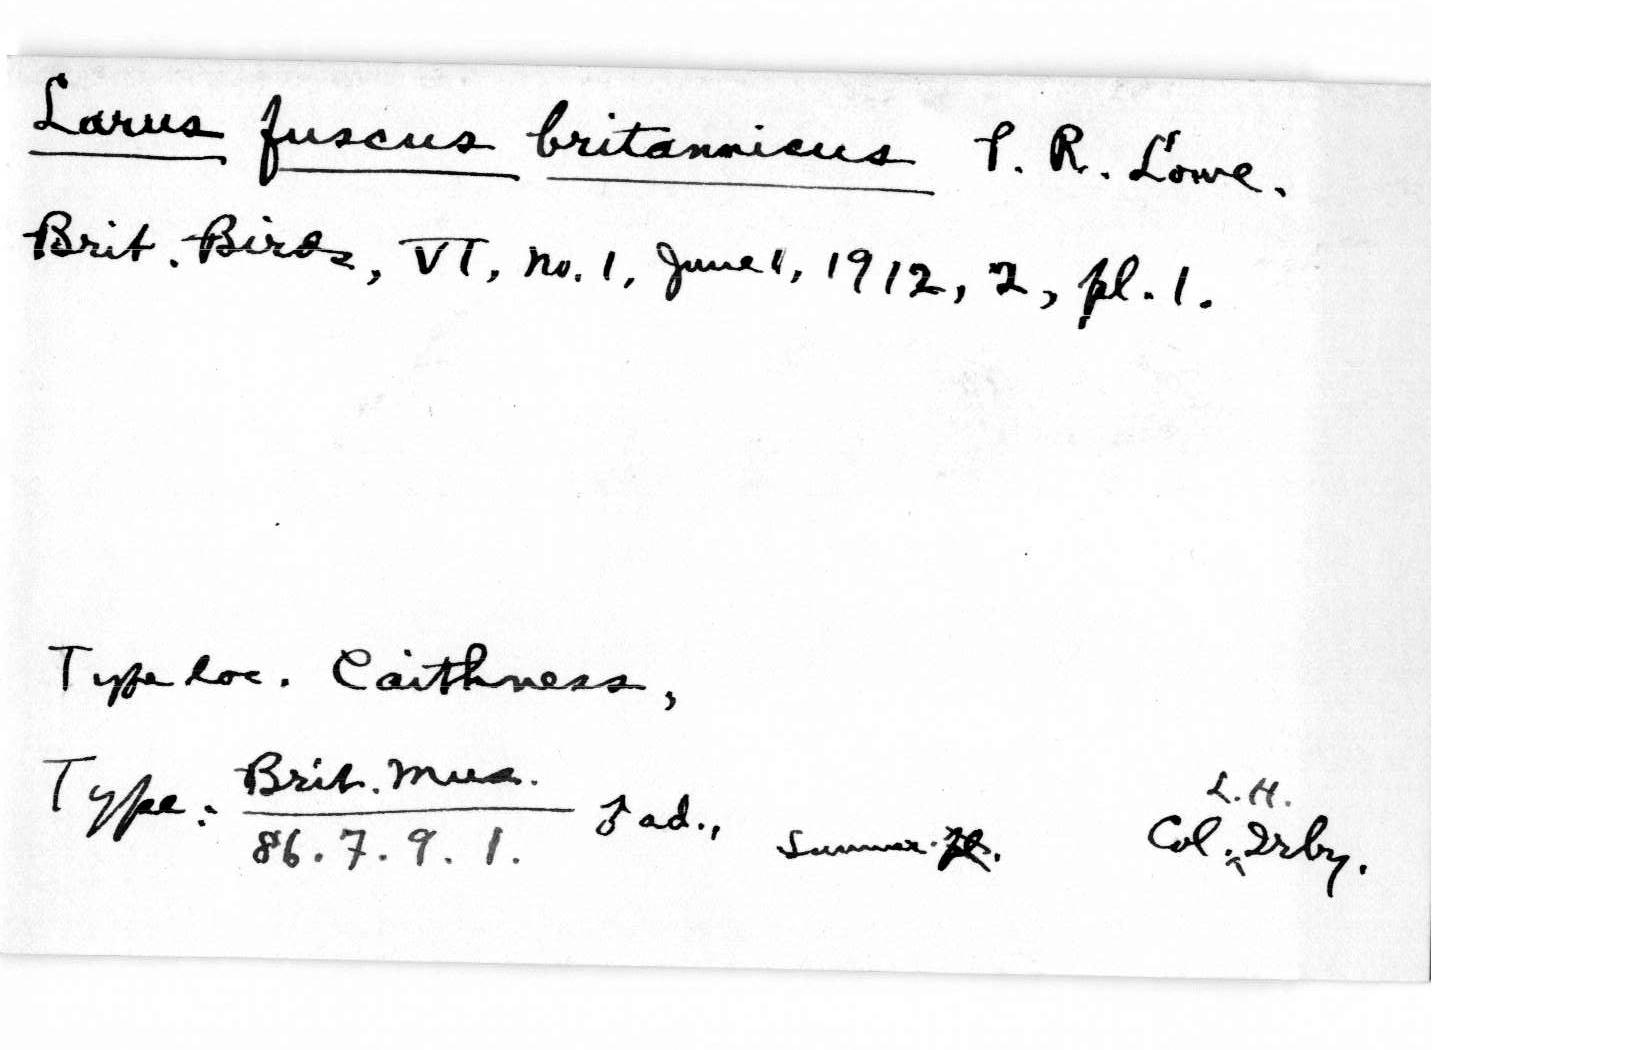 Larus fuscus britannicus P. R. Lowe.
Brit. Birds, VI, no. 1, June 1, 1912, 2, pl. 1.
Type loc. Caithness,
Type: Brit. Mus. ♂ ad., Summer. Col. L.H. Irby.
86.7.9.1.